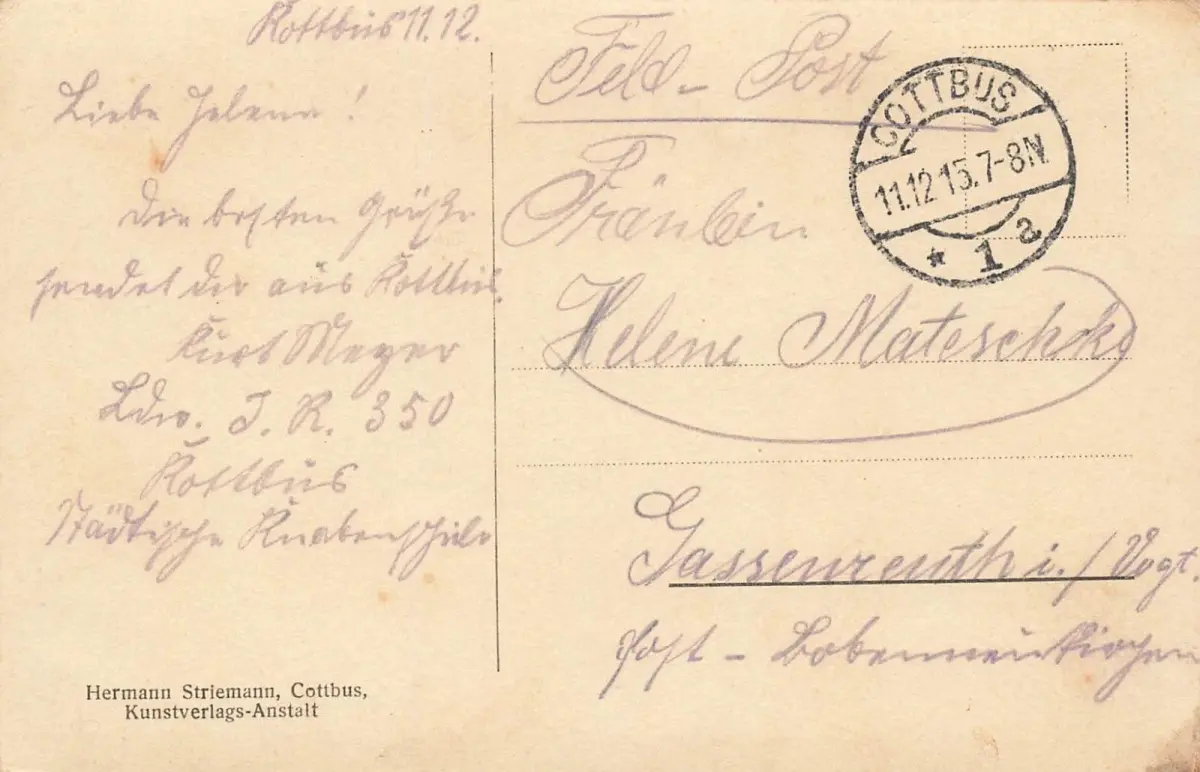 Kottbus 11.12.
Liebe Helena!
Die besten Grüße
sendet dir aus Kottbus.
Kurt Meyer
Ldw. I. R. 350
Kottbus
Städtische Knabenschule
Hermann Striemann, Cottbus,
Kunstverlags-Anstalt
Feld-Post
COTTBUS
11.12.15.7-8N
* 1 a
Fräulein
Helene Mateschke
Gassenreuth i./Vogt.
Post - Bobenneukirchen